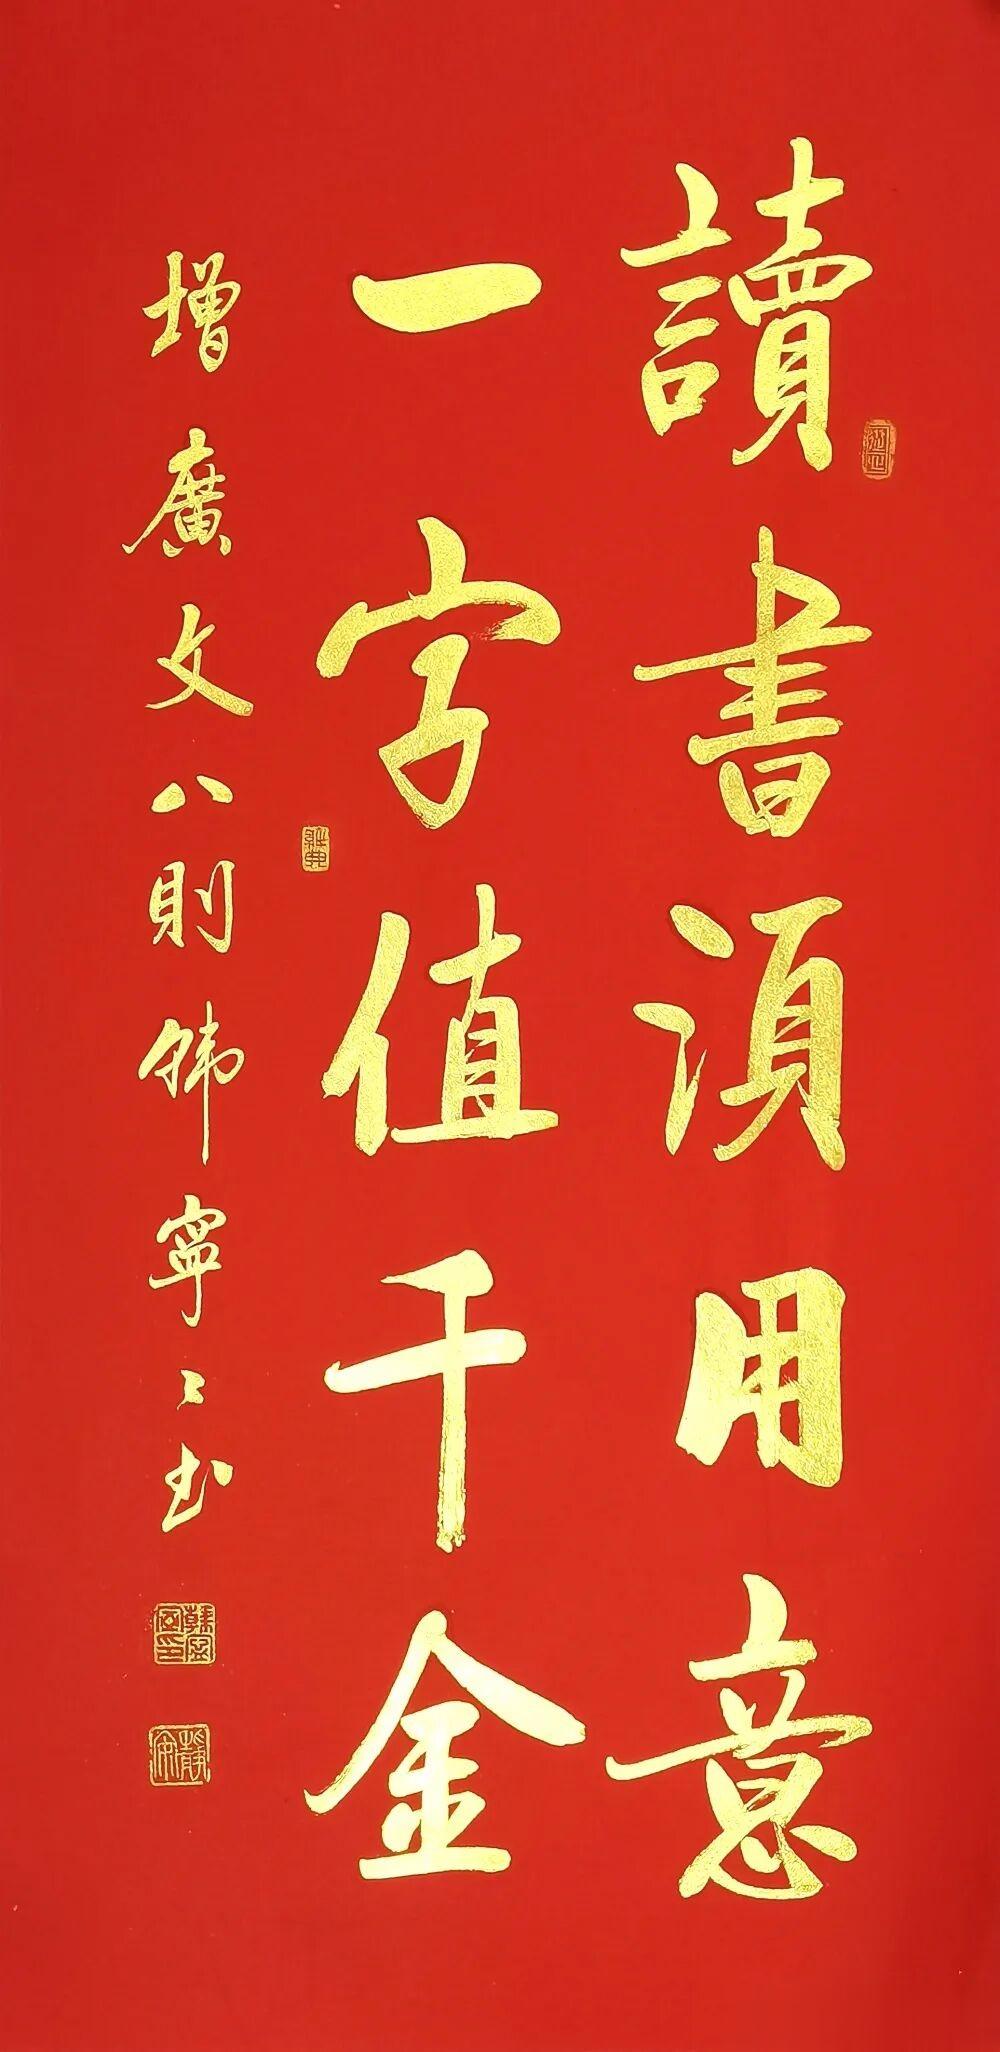 讀書須用意
一字值千金
增廣文八則韩寧寧书